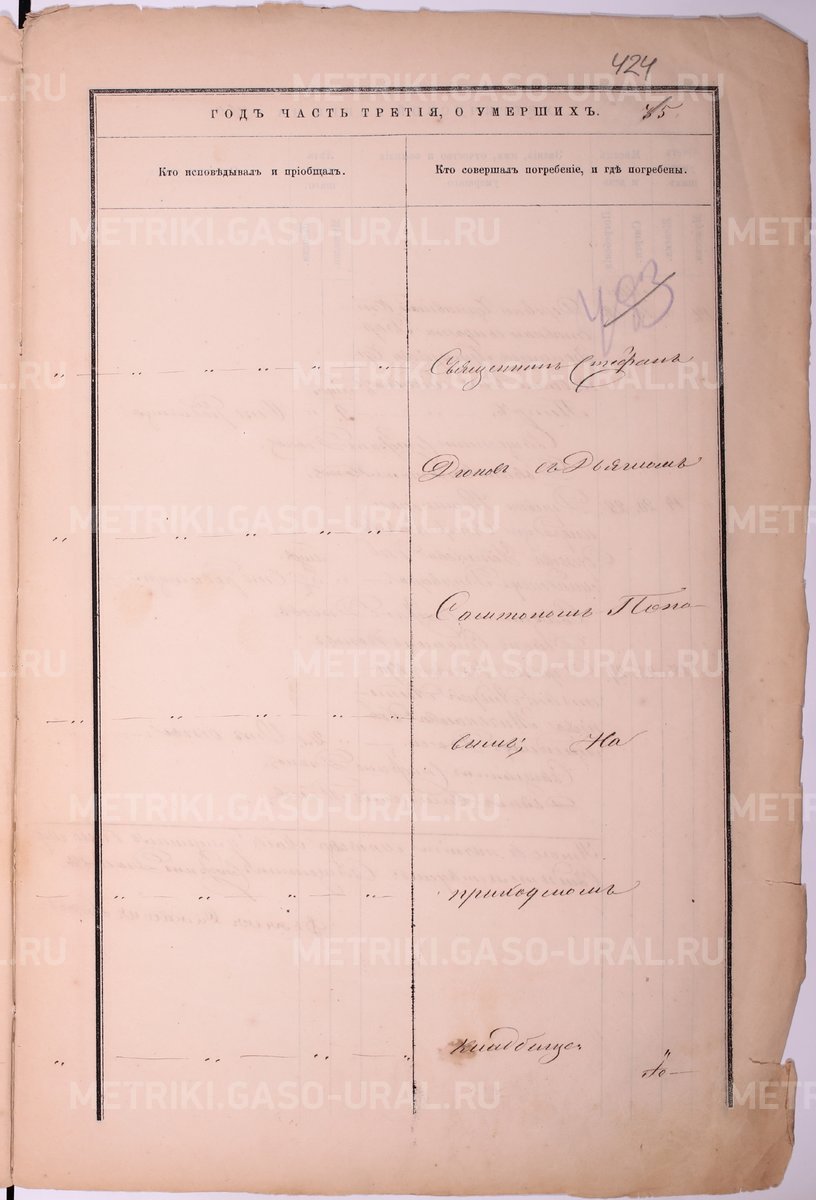 424
ГОДЪ ЧАСТЬ ТРЕТІЯ, О УМЕРШИХЪ.
Кто исповѣдывалъ и пріобщалъ.
Кто совершалъ погребеніе, и гдѣ погребены.
483
Священникъ Стефанъ
съ Дьячкомъ
Попо-
вымъ; На
приходскомъ
кладбище.
METRIKI.GASO-URAL.RU